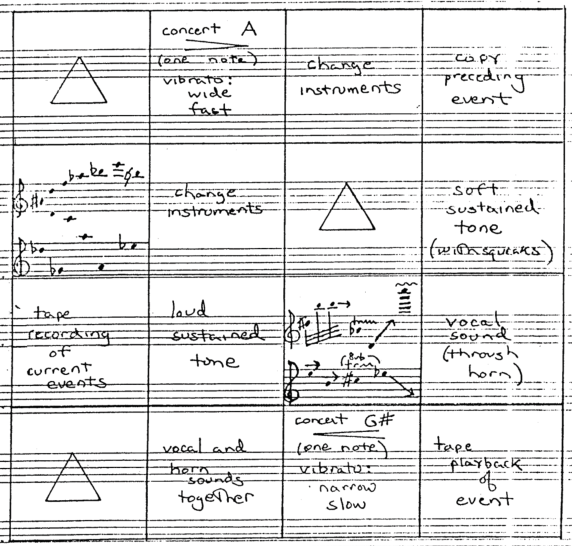 concert A
(one note)
vibrato:
wide
fast
change
instruments
copy
preceding
event
change
instruments
soft
sustained
tone
(with squeaks)
tape
recording
of
current
events
loud
sustained
tone
vocal
sound
(through
horn)
vocal and
horn
sounds
together
concert G#
(one note)
vibrato:
narrow
slow
tape
playback
of
event